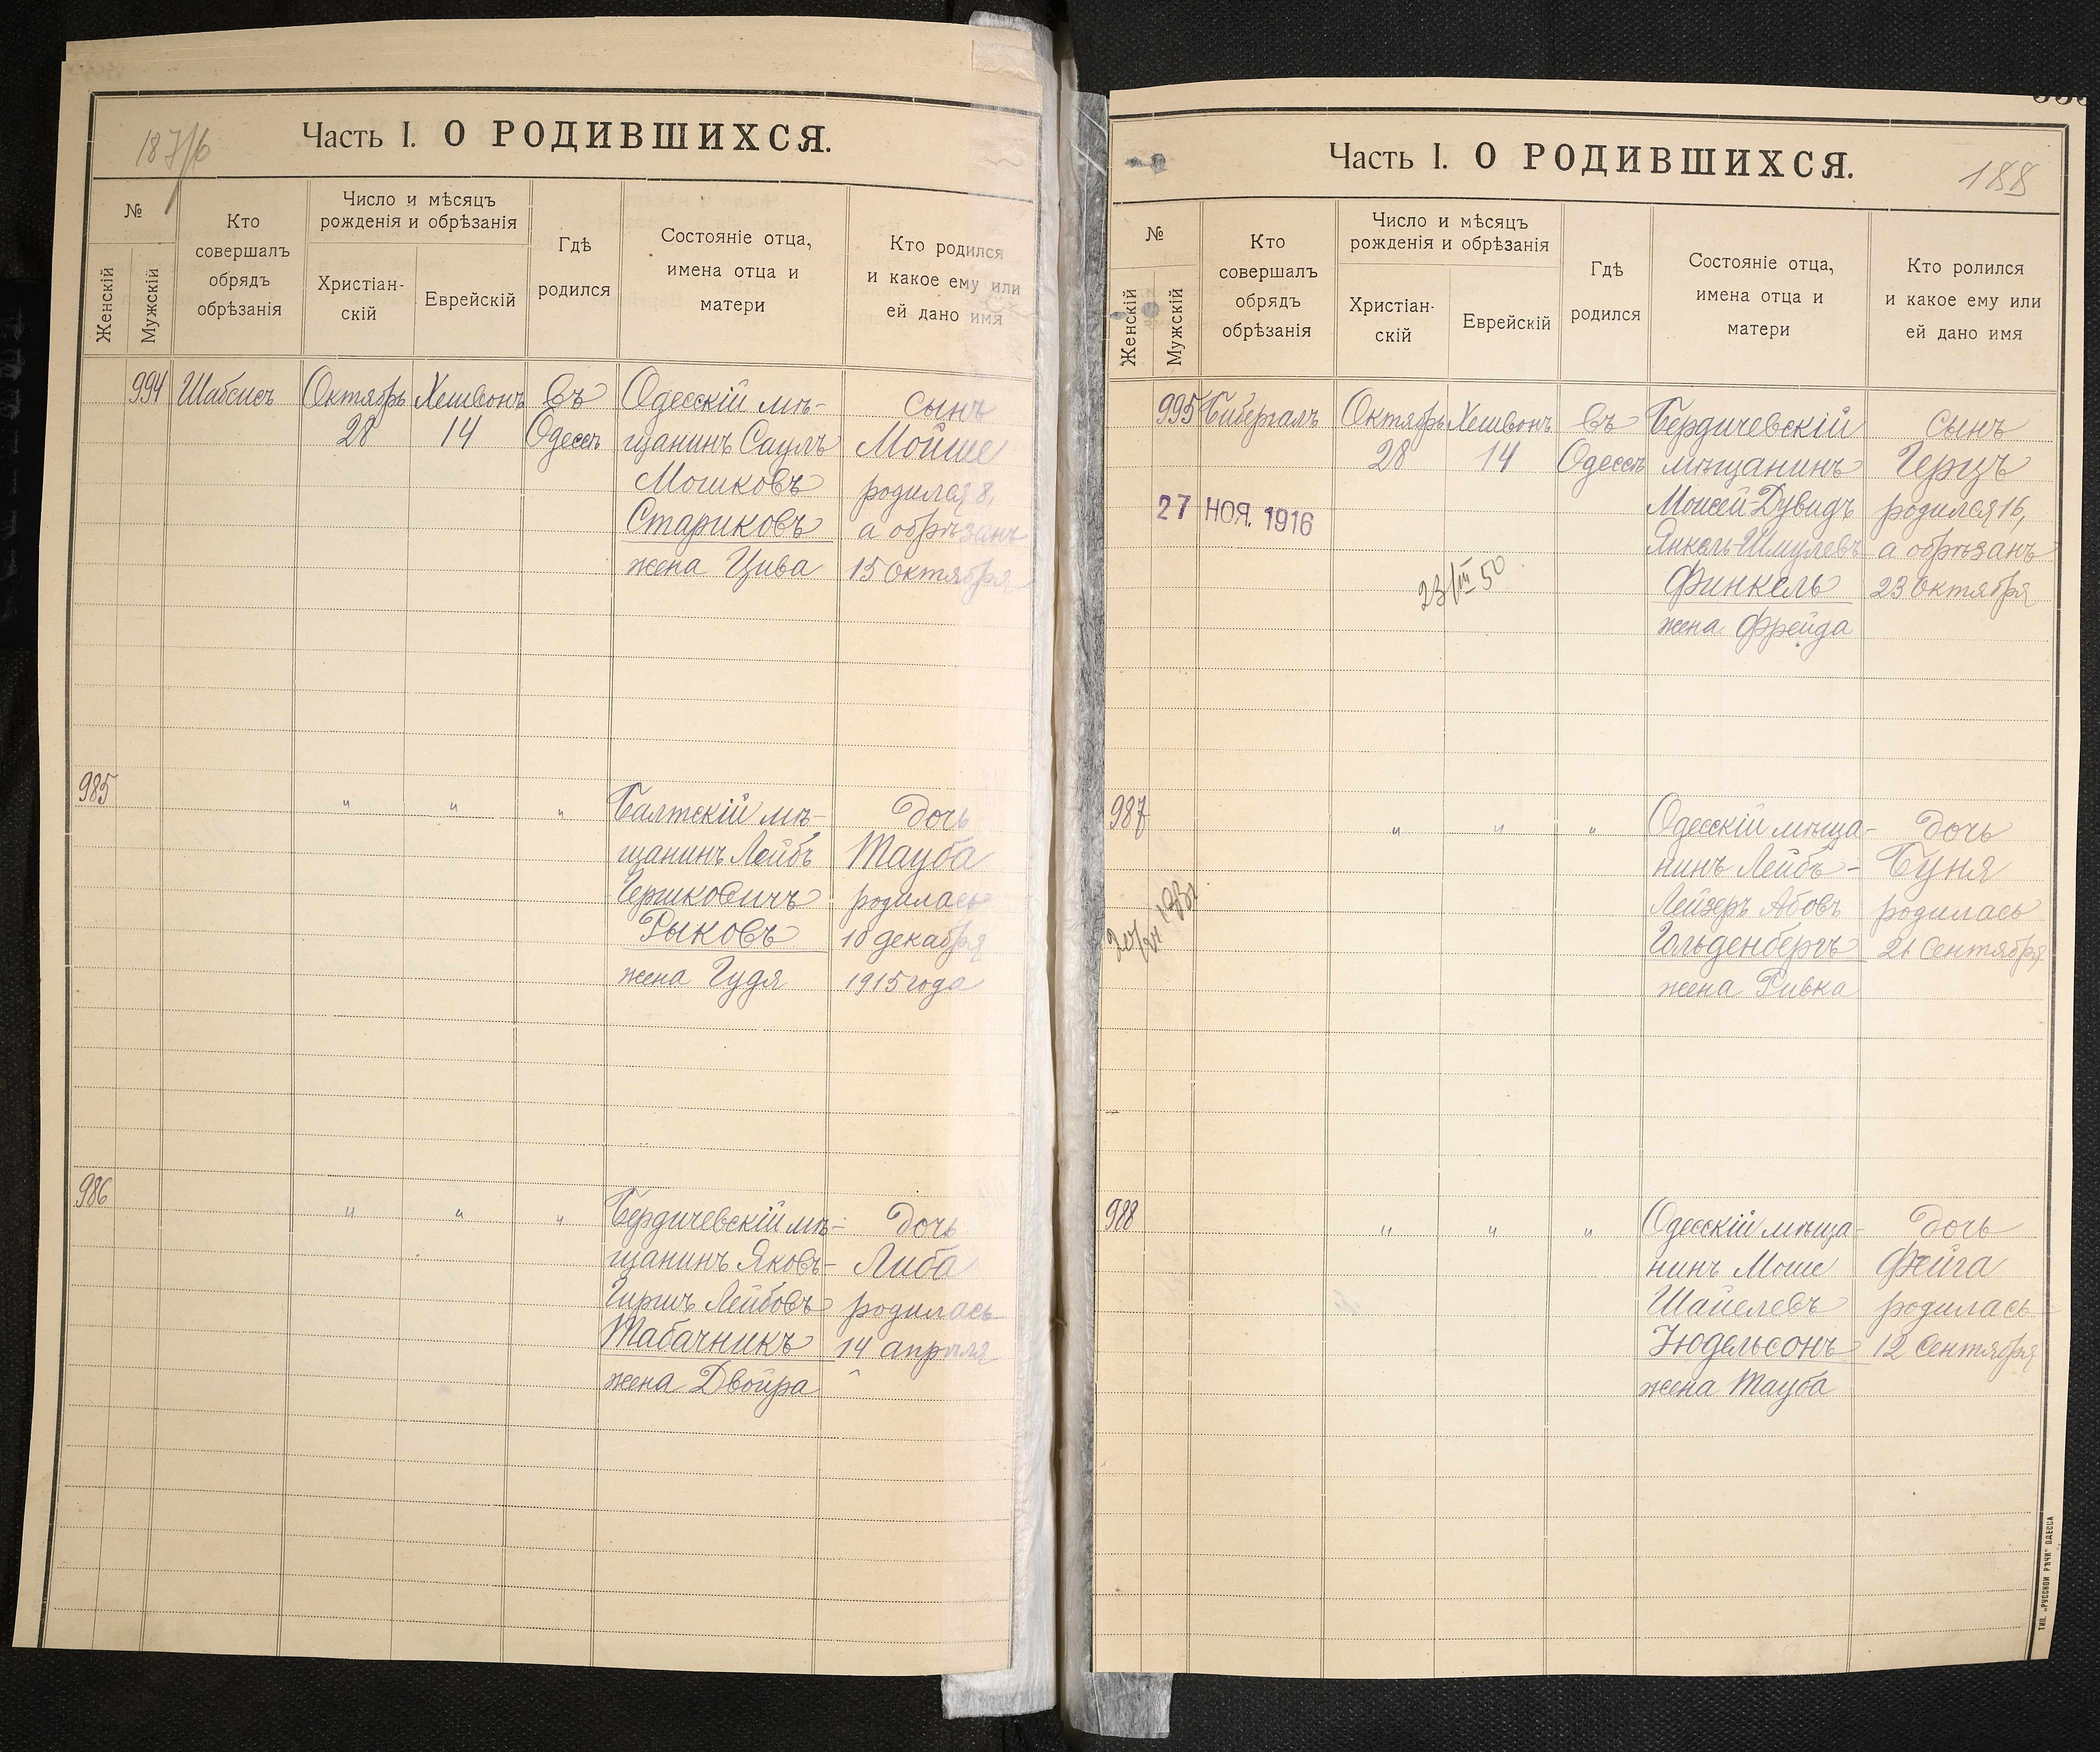 187/б
Часть I. О РОДИВШИХСЯ.
№
Женскій
Мужскій
Кто
совершалъ
обрядъ
обрѣзанія
Число и мѣсяцъ
рожденія и обрѣзанія
Христіан-
скій
Еврейскій
Гдѣ
родился
Состояніе отца,
имена отца и
матери
Кто родился
и какое ему или
ей дано имя
994 Шабсисъ Октябрь Хешвонъ въ Одесскій мѣ- сынъ
28 14 Одессѣ щанинъ Саулъ Мойше
Мошковъ родился 8,
Стариковъ а обрѣзанъ
жена Цива 15 октября
985 " " " Балтскій мѣ- дочь
щанинъ Лейбъ Тауба
Гершковичъ родилась
Рыковъ 10 декабря
жена Гудя 1915 года
986 " " " Бердичевскій мѣ- дочь
щанинъ Яковъ- Либа
Гиршъ Лейбовъ родилась
Табачникъ 14 апрѣля
жена Двойра
Часть I. О РОДИВШИХСЯ.
188
№
Женскій
Мужскій
Кто
совершалъ
обрядъ
обрѣзанія
Число и мѣсяцъ
рожденія и обрѣзанія
Христіан-
скій
Еврейскій
Гдѣ
родился
Состояніе отца,
имена отца и
матери
Кто ролился
и какое ему или
ей дано имя
995 Бибергалъ Октябрь Хешвонъ въ Бердичевскій сынъ
28 14 Одессѣ мѣщанинъ Герцъ
27 НОЯ. 1916 Моисей-Дувидъ родился 16,
Янкель-Шмулевъ а обрѣзанъ
23/III 50 Финкель 23 октября
жена Фрейда
987 " " " Одесскій мѣща- дочь
нинъ Лейбъ- Буня
Лейзеръ Абовъ родилась
Гольденбергъ 21 Сентября
жена Ривка
988 " " " Одесскій мѣща- дочь
нинъ Моше Фейга
Шайелевъ родилась
Юдельсонъ 12 Сентября
жена Тауба
ТИП. „РУССКОЙ РѢЧИ" ОДЕССА